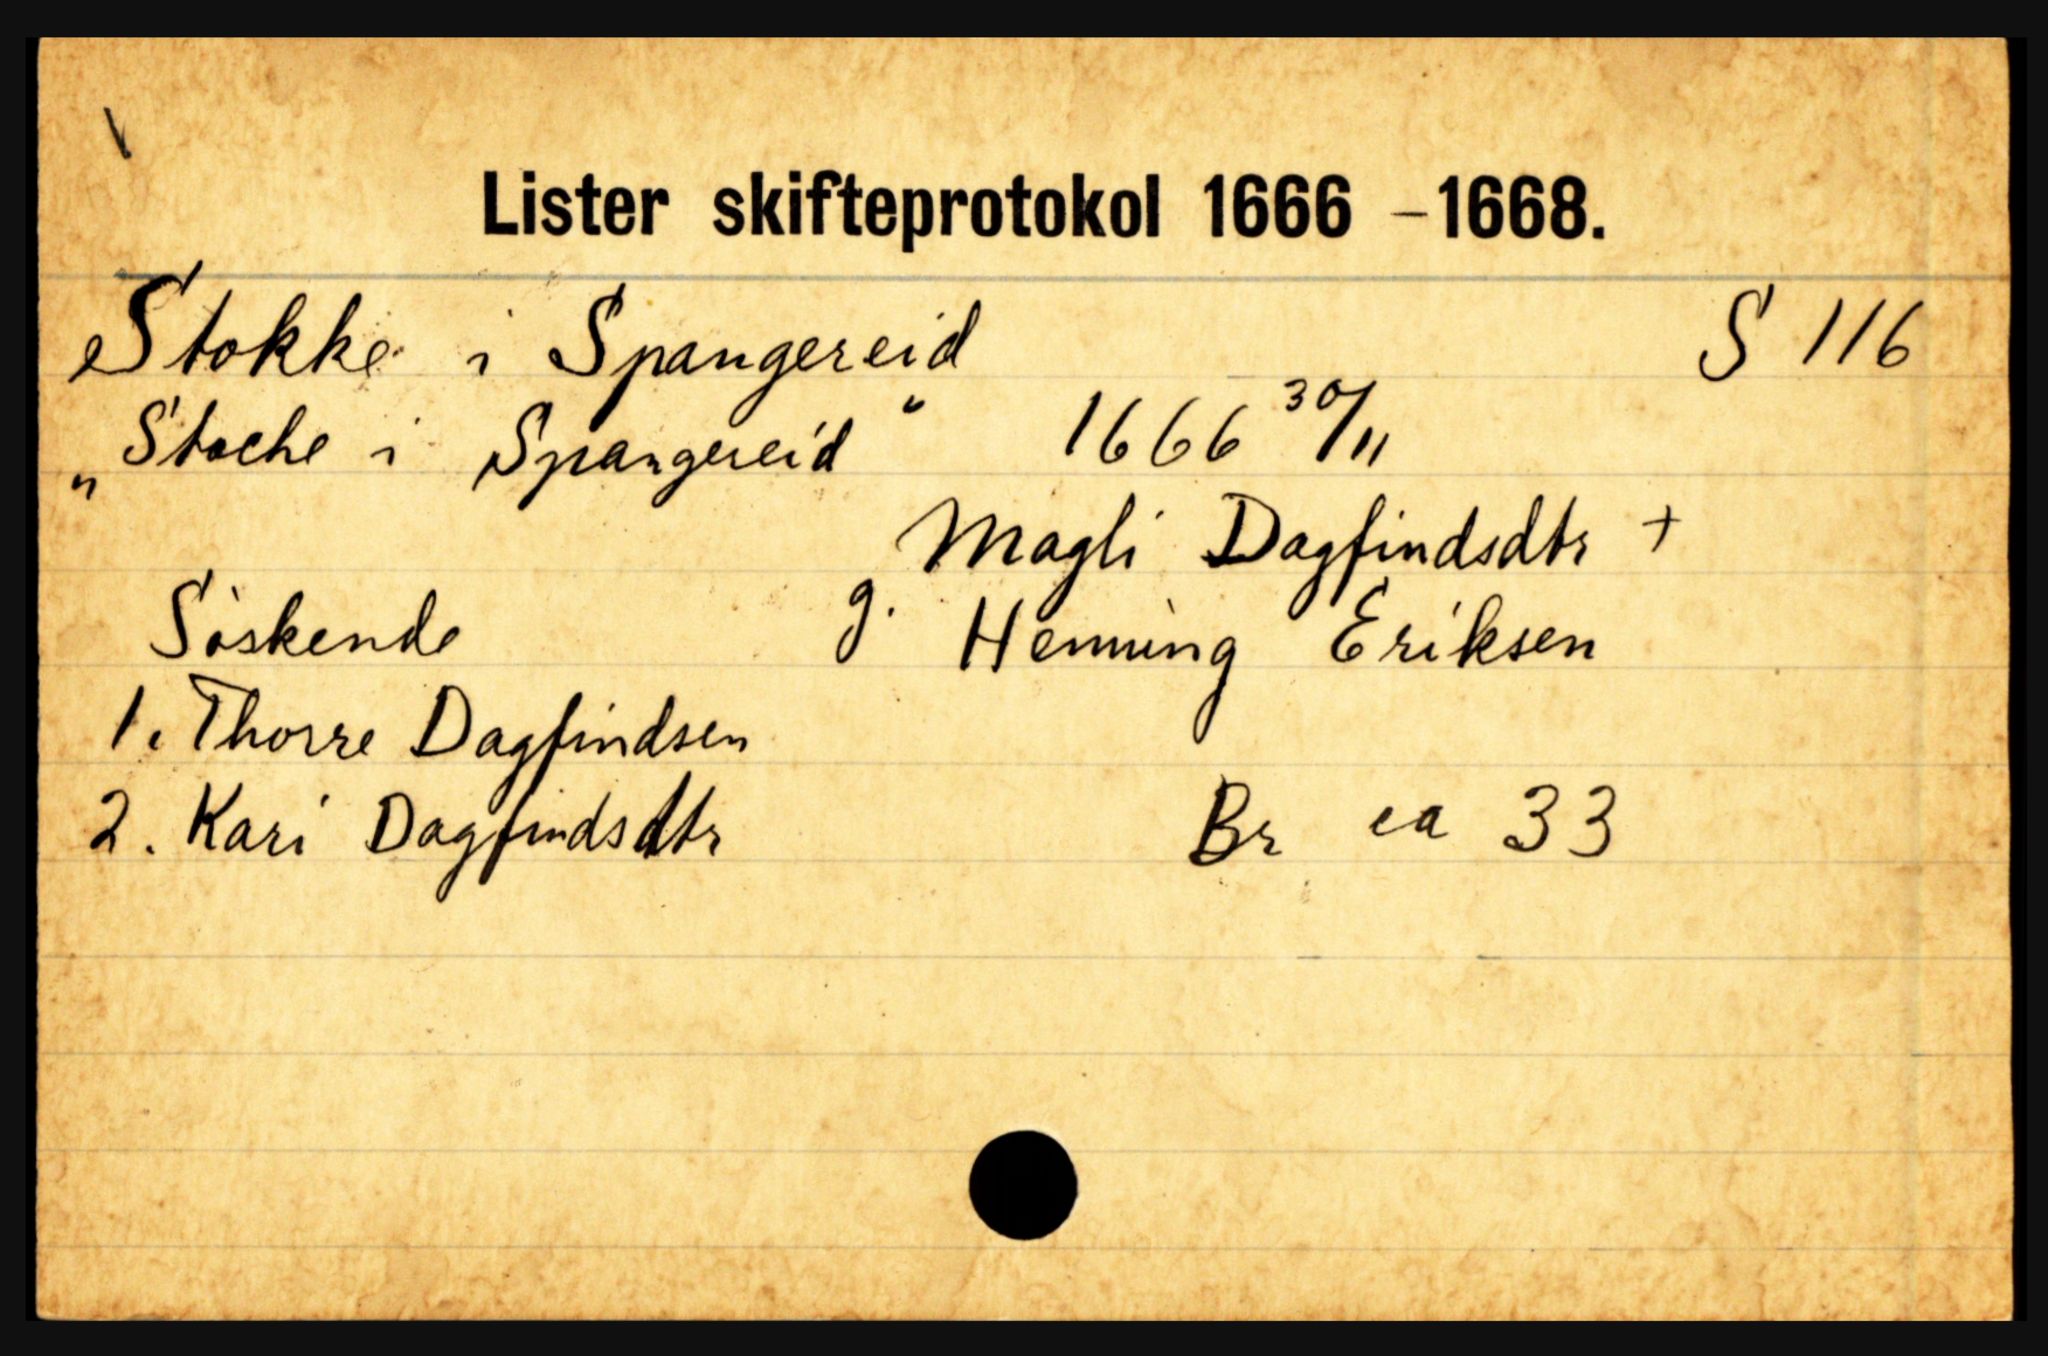 Lister skifteprotokol 1666 - 1668.
Stokke i Spangereid S 116
„Stoche i Spangereid“ 1666 30/11
Magli Dagfindsdtr +
Söskende g. Henning Eriksen
1. Thorre Dagfindsen
2. Kari Dagfindsdtr Br ca 33